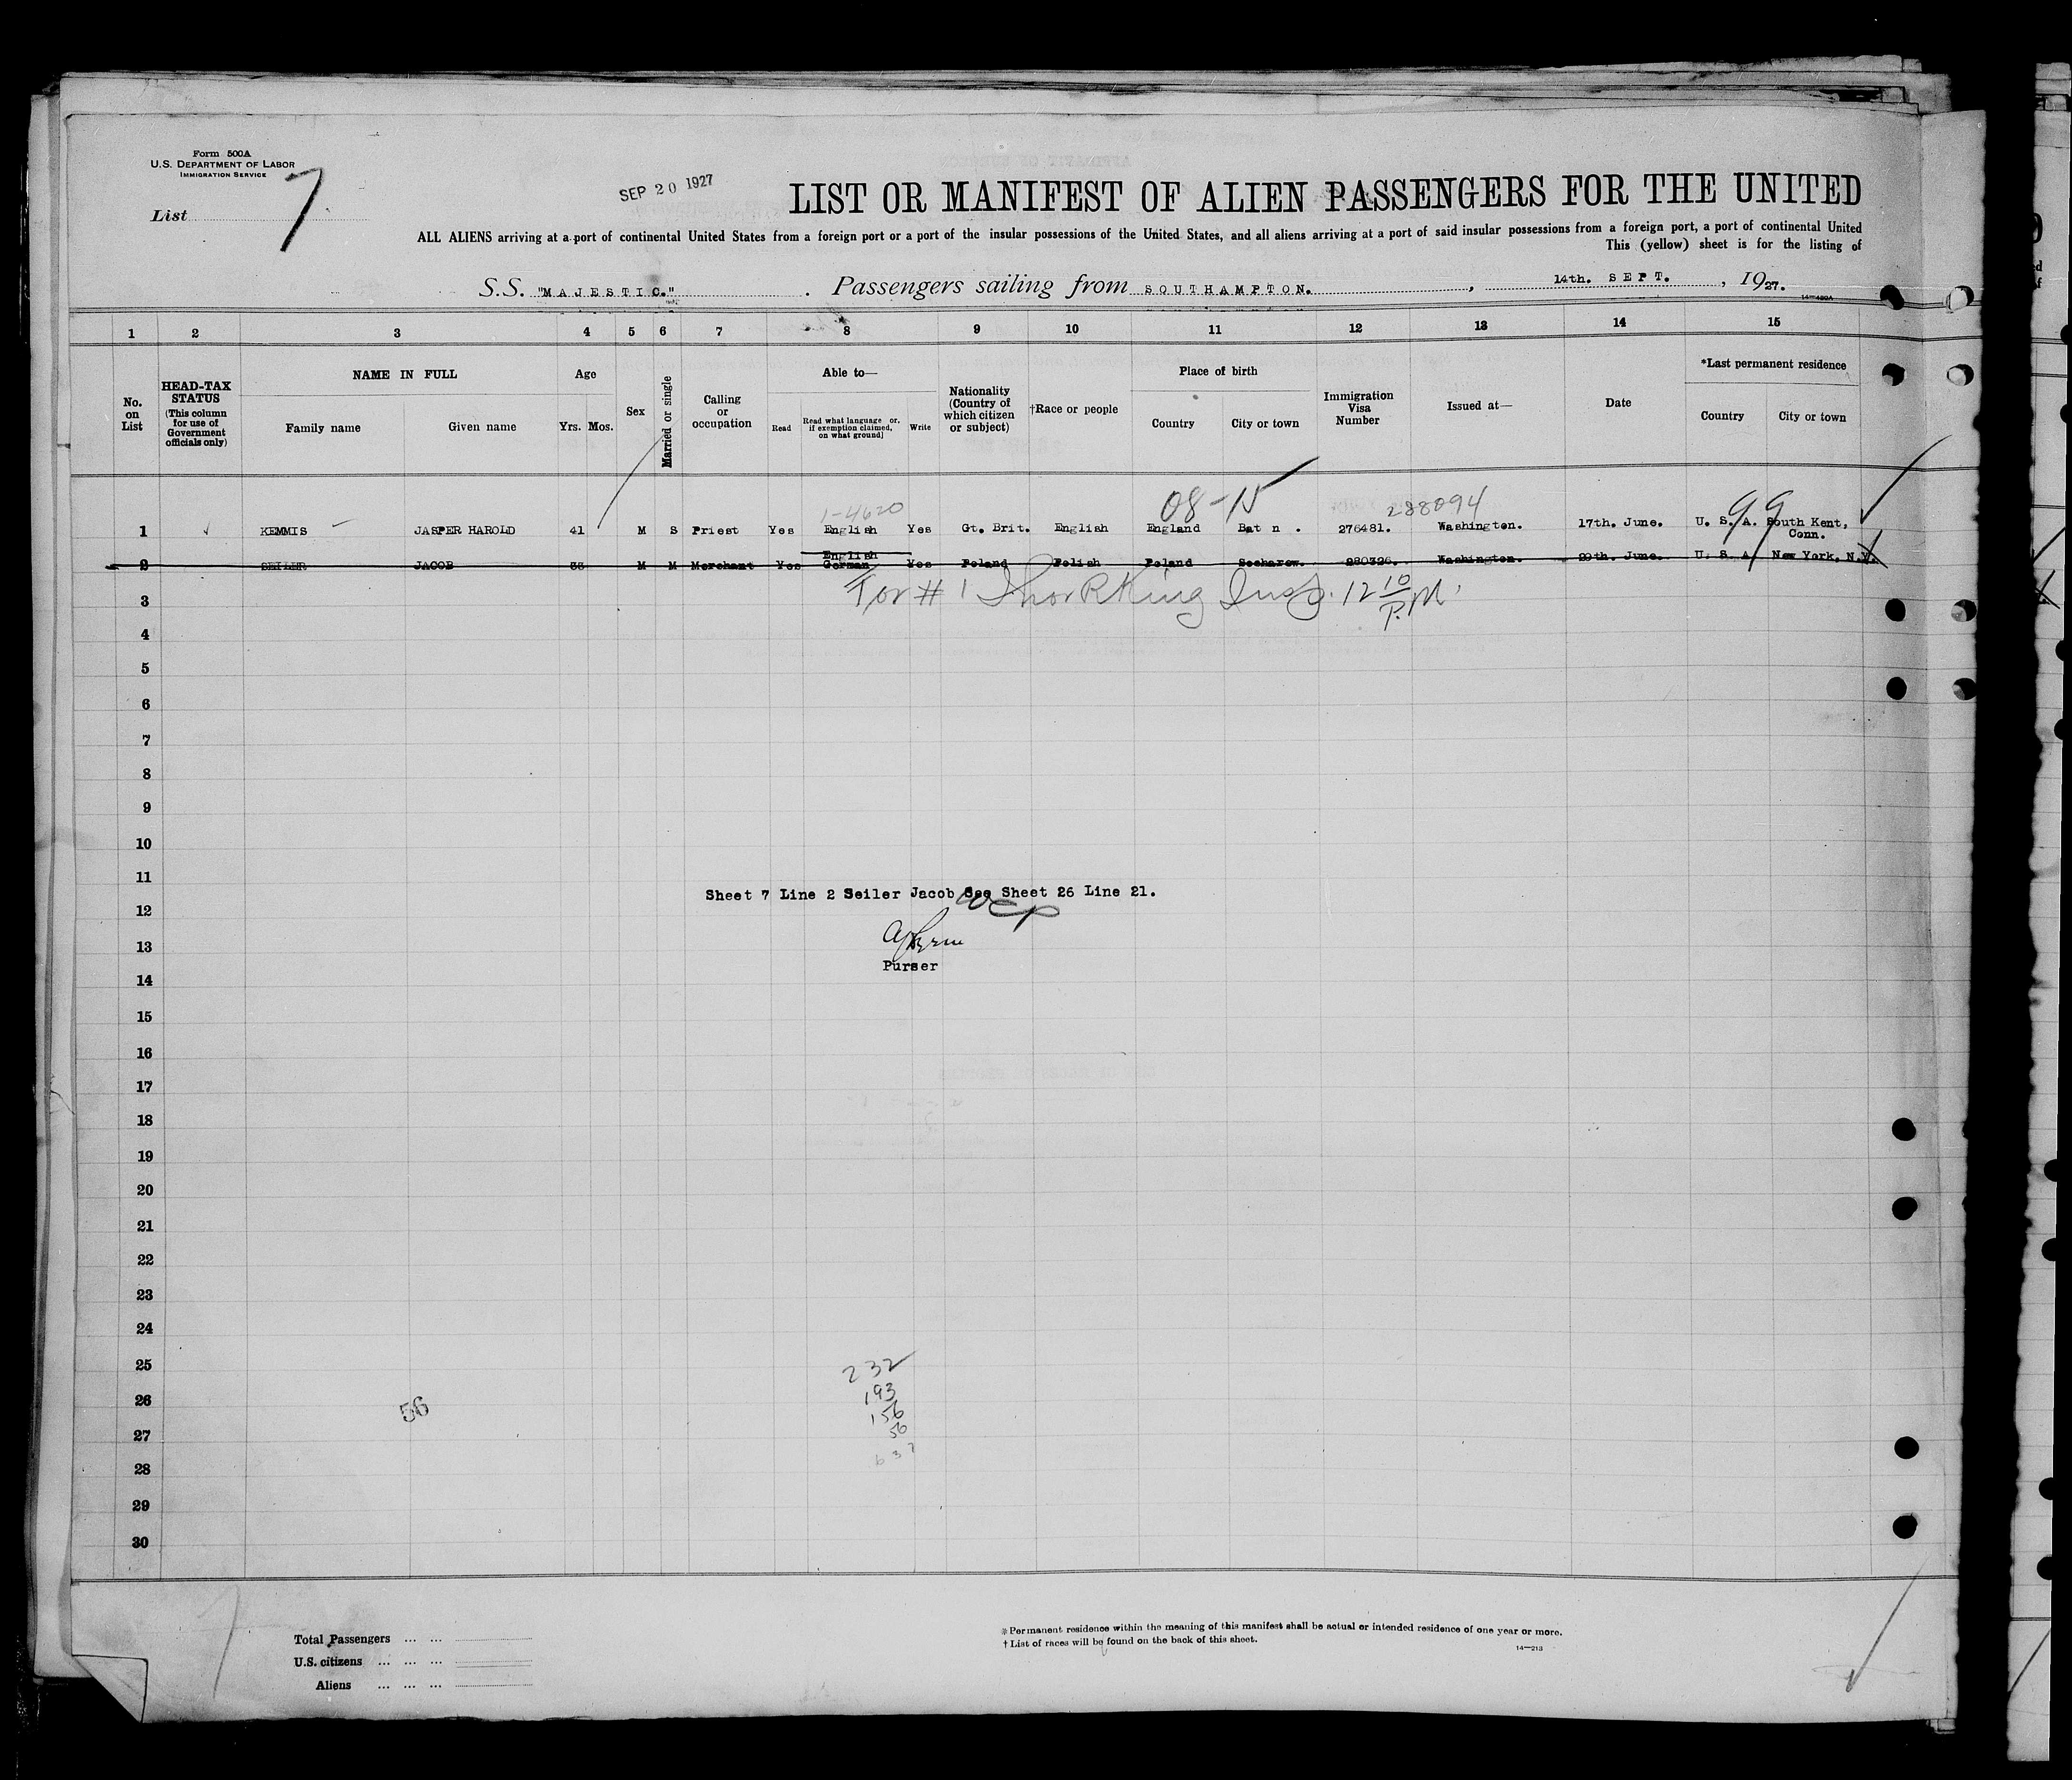 Form 500A
U.S. DEPARTMENT OF LABOR
IMMIGRATION SERVICE
List 7
SEP 20 1927
LIST OR MANIFEST OF ALIEN PASSENGERS FOR THE UNITED
ALL ALIENS arriving at a port of continental United States from a foreign port or a port of the insular possessions of the United States, and all aliens arriving at a port of said insular possessions from a foreign port, a port of continental United
This (yellow) sheet is for the listing of
S.S. "MAJESTIC." Passengers sailing from SOUTHAMPTON. , 14th. SEPT. , 1927.
1 2 3 4 5 6 7 8 9 10 11 12 13 14 15
No. on List
HEAD-TAX STATUS (This column for use of Government officials only)
NAME IN FULL
Family name Given name
Age
Yrs. Mos.
Sex
Married or single
Calling or occupation
Able to—
Read Read what language or, if exemption claimed, on what ground] Write
Nationality (Country of which citizen or subject)
†Race or people
Place of birth
Country City or town
Immigration Visa Number
Issued at—
Date
*Last permanent residence
Country City or town
1-4620 08-N 288094 99
1 KEMMIS JASPER HAROLD 41 M S Priest Yes English Yes Gt. Brit. English England Bat n . 276481. Washington. 17th. June. U. S. A. South Kent, Conn.
2 SEILER JACOB 33 M M Merchant Yes English German Yes Poland Polish Poland Socharow. 280326. Washington. 29th. June. U. S. A. New York, N.Y.
3
For # 1 Insp. 12 10 P.M.
4
5
6
7
8
9
10
11
Sheet 7 Line 2 Seiler Jacob See Sheet 26 Line 21.
12
13
Purser
14
15
16
17
18
19
20
21
22
23
24
25
232
26
193
56
156
27
56
28
637
29
30
Total Passengers ... ...
U.S. citizens ... ... ...
Aliens ... ... ...
* Permanent residence within the meaning of this manifest shall be actual or intended residence of one year or more.
† List of races will be found on the back of this sheet.
14—213